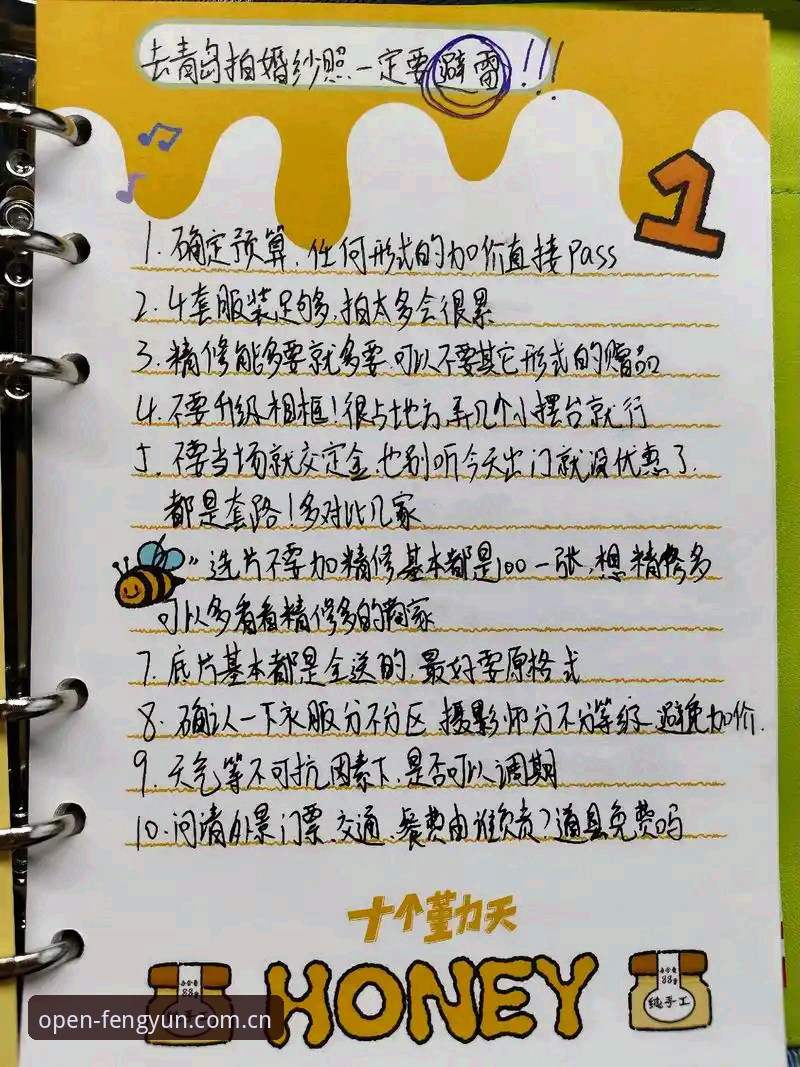 去青岛拍婚纱照一定要避雷!!!
1
1. 确定预算, 任何形式的加价直接pass
2. 4套服装足够, 拍太多会很累
3. 精修能多要就多要, 可以不要其它形式的赠品
4. 不要升级相框!很占地方, 弄几个小摆台就行
5. 不要当场就交定金, 也别听今天出门就没优惠了,
都是套路!多对比几家
选片不要加精修, 基本都是100一张, 想精修多
可以多看看精修多的商家
7. 底片基本都是全送的, 最好要原格式
8. 确认一下衣服分不分区, 摄影师分不分等级, 避免加价.
9. 天气等不可抗因素下, 是否可以调期
10. 问清外景门票、交通、餐费由谁负责?道具免费吗
十个勤天
HONEY
88
纯手工
88
纯手工
open-fengyun.com.cn